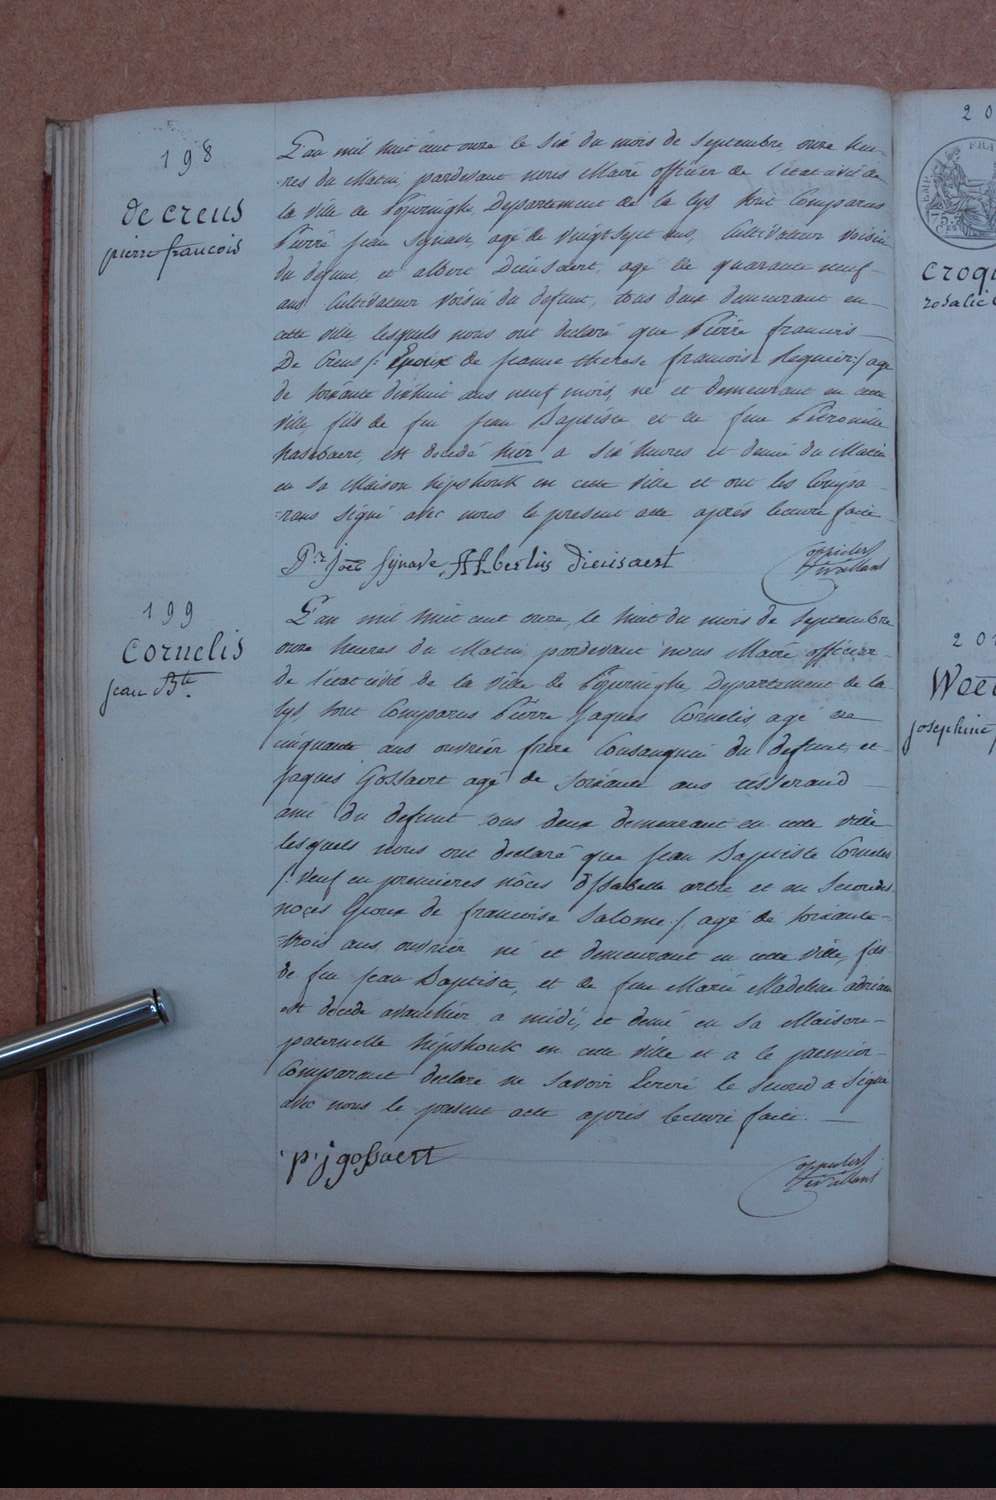 198
de creus
pierre francois
L'an mil huit cent onze le six du mois de Septembre, onze heu-
-res du Matin, pardevant nous Maire officier de l'état civil de
la ville de Département de la Lys, sont Comparus
Pierre jean Synave, agé de vingt sept ans, Cultivateur voisin
du defunt, et albert Dieusaert, agé de quarante neuf
ans Cultivateur voisin du defunt, tous deux demeurant en
cette ville lesquels nous ont declaré que Pierre francois
De Creus /: Epoux de jeanne therese francoise :/ agé
de soixante dixhuit ans neuf mois, né et demeurant en cette
ville, fils de feu jean Baptiste et de feue Petronille
est decedé hier a six heures et demie du Matin
en sa Maison hipshouk en cette ville et ont les Compa-
-rans signé avec nous le present acte après lecture faite
Pr. joa Synave Albertus Dieusaert
199
Cornelis
jean Bte.
L'an mil huit cent onze, le huit du mois de Septembre
onze heures du Matin pardevant nous Maire officier
de l'état civil de la ville de Département de la
Lys, sont Comparus Pierre jaques Cornelis agé de
cinquante ans ouvrier frere Consanguin du defunt, et
jaques Gossaert agé de soixante ans tisserand
ami du defunt tous deux demeurant en cette ville
lesquels nous ont declaré que jean Baptiste Cornelis
/: veuf en premieres nôces d'jsabelle et en Secondes
noces Epoux de francoise Salome :/ agé de soixante-
-trois ans, ouvrier né et demeurant en cette ville, fils
de feu jean Baptiste, et de feue Marie Madeleine adriaen
est decedé avanthier a midi, et demi en sa Maison
paternelle hipshouk en cette ville et a le premier
Comparant declaré ne savoir Ecrire le second a signé
avec nous le present acte après lecture faite.
p. j gossaert
20
croq
rosalie
20
Wee
josephine